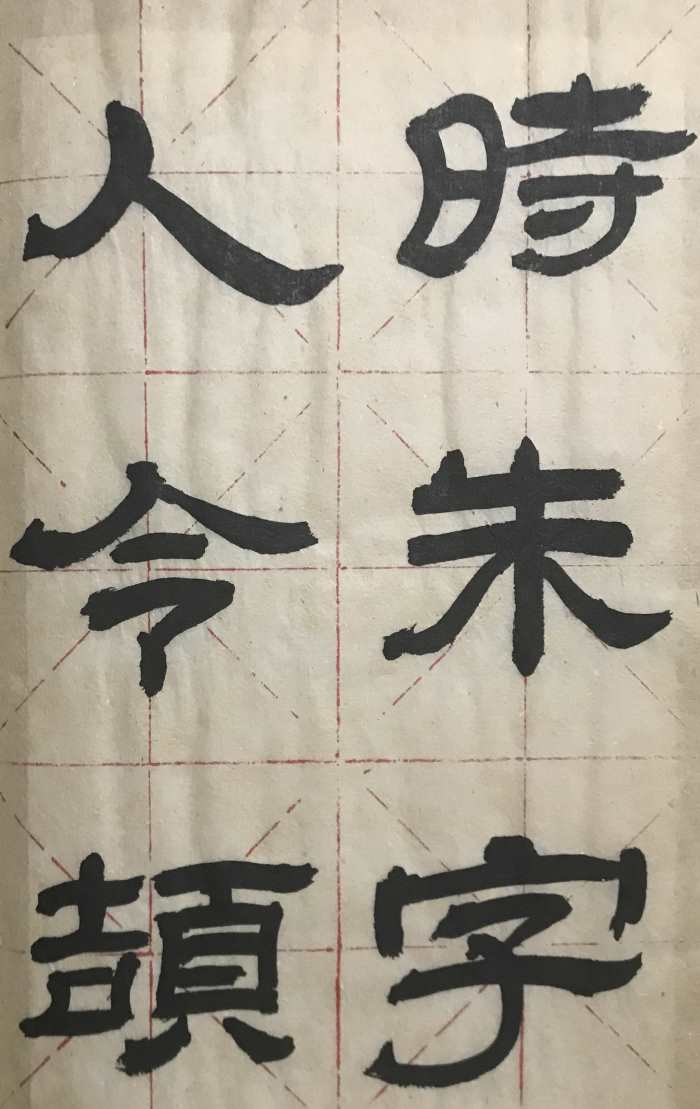 時朱字
人令頡